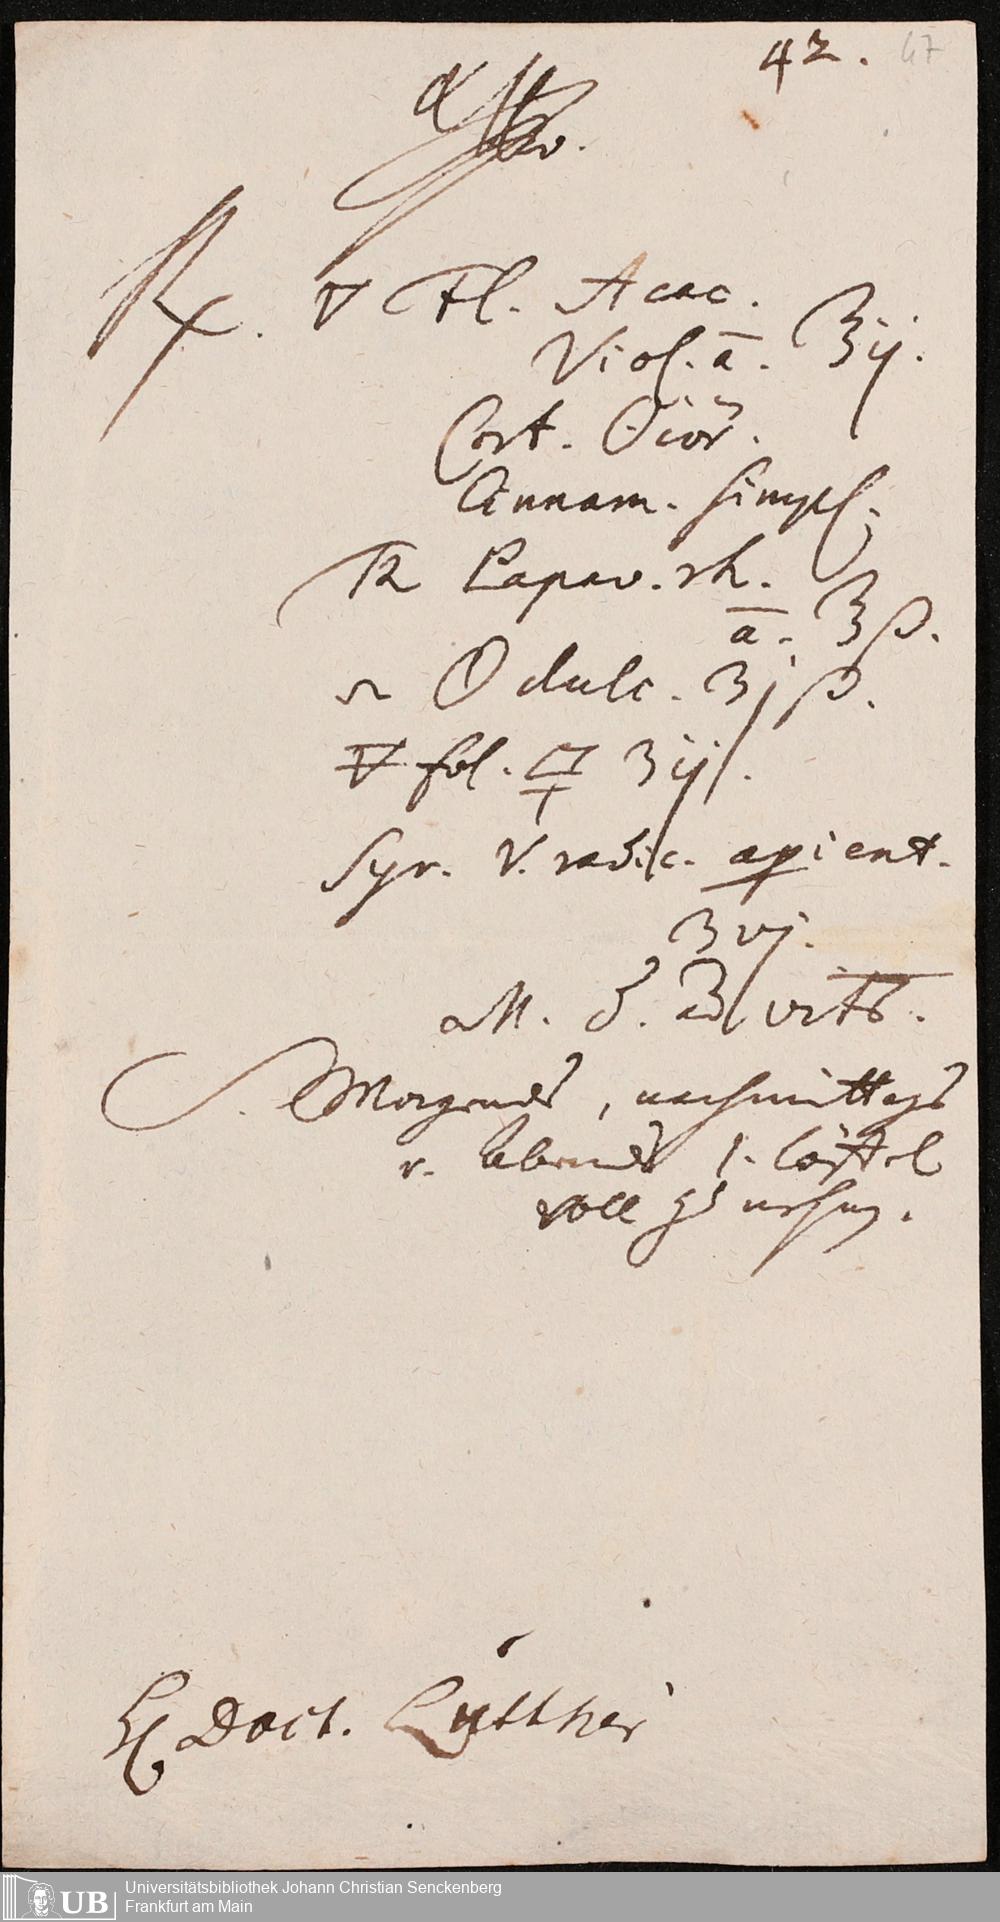 42. 47
℞. 🜄 Fl. Acac.
Viol. ā. ℥ij.
Cort. Citr.
Cinnam. simpl.
Papav. rh.
ā. ℥ß.
dulc. ʒjß.
fol. ʒij.
Syr. V. radic. apient.
℥vj.
M. D. ad vitr.
S. Morgends, nachmittags
u. Abends 1. Löffel
voll zu nehmen.
H Doct. Lütther
Universitätsbibliothek Johann Christian Senckenberg
UB Frankfurt am Main